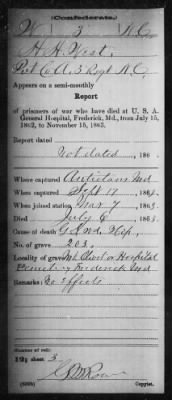 (Confederate.)
W 3 N.C.
H. H. West,
Pvt. Co. A, 3 Regt. N.C.
Appears on a semi-monthly
Report
of prisoners of war who have died at U. S. A.
General Hospital, Frederick, Md., from July 15,
1862, to November 15, 1863.
Report dated
Not dated, 186 .
Where captured Antietam Md
When captured Sept 17, 186
When joined station Mar 7, 1863.
Died July 6, 1863.
Cause of death
No. of grave 203.
Locality of grave Mt. Olivet or Hospital
Cemetery Frederick Md
Remarks: No effects
Number of roll:
sheet 3
Copyist.